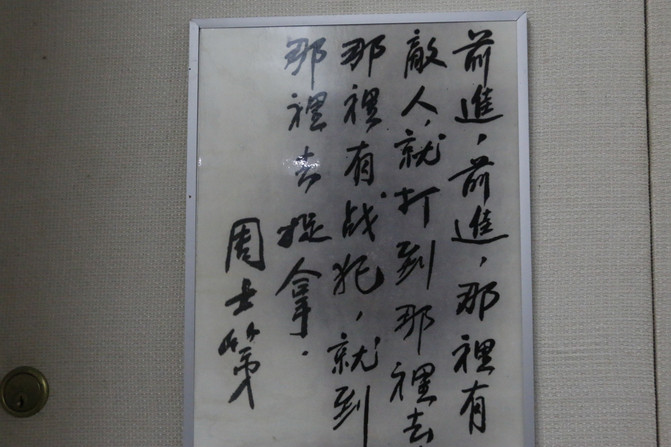 前進，前進，那裡有
敵人，就打到那裡去
那裡有战犯，就到
那裡去捉拿．
周士第